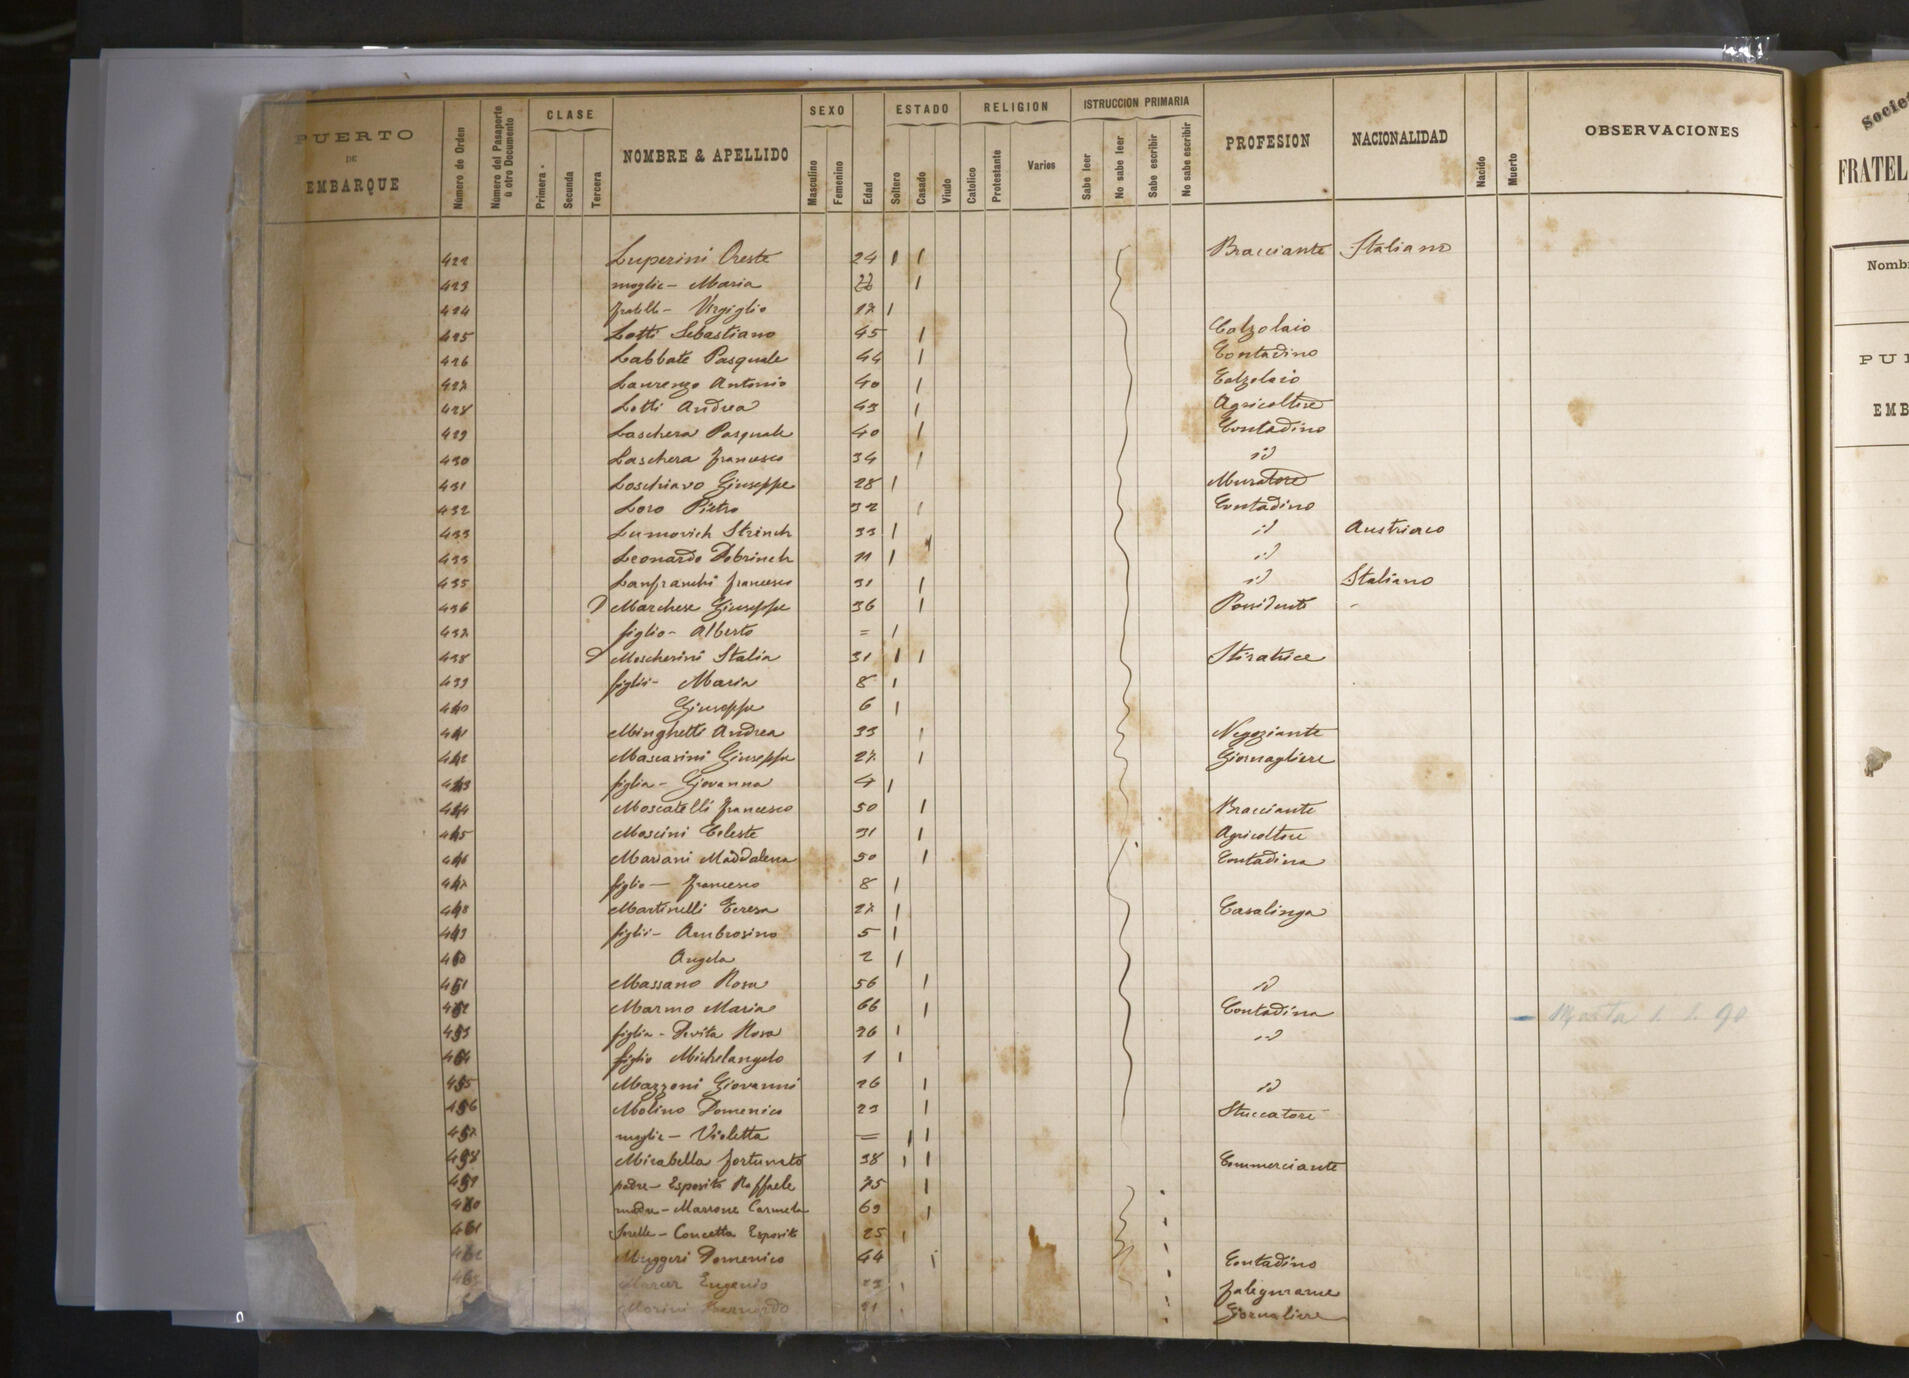 PUERTO DE EMBARQUE
Número de Orden
Número del Pasaporte ú otro Documento
CLASE
Primera
Segunda
Tercera
NOMBRE & APELLIDO
SEXO
Masculino
Femenino
Edad
ESTADO
Soltero
Casado
Viudo
RELIGION
Catolico
Protestante
Varios
ISTRUCCION PRIMARIA
Sabe leer
No sabe leer
Sabe escribir
No sabe escribir
PROFESION
NACIONALIDAD
Nacido
Muerto
OBSERVACIONES
422 Luperini Oreste 24 Bracciante Italiano
423 moglie - Maria
424 fratello - Virgiglio 17
425 Lotti Sebastiano 45 Calzolaio
426 Labbate Pasquale 44 Contadino
427 Laurenzo Antonio 40 Calzolaio
428 Lotti Andrea 43 Agricoltore
429 Laschera Pasquale 40 Contadino
430 Laschera Francesco 34 id
431 Loschiavo Giuseppe 28 Muratore
432 Loro Pietro 32 Contadino
433 Lumovich Strinch 33 id Austriaco
433 Leonardo Dobrinch 11 id
435 Lanfranchi Francesco 31 id Italiano
436 Marchese Giuseppe 36 Possidente -
437 figlio - Alberto =
438 Moscherini Italia 31 Stiratrice
439 figlii - Maria 8
440 Giuseppe 6
441 Minghetti Andrea 33 Negoziante
442 Mascarini Giuseppe 27 Giornagliere
443 figlia - Giovanna 4
444 Moscatelli Francesco 50 Bracciante
445 Moscini Celeste 31 Agricoltore
446 Mariani Maddalena 50 Contadina
447 figlio - Francesco 8
448 Martinelli Teresa 27 Casalinga
449 figlii - Ambrosino 5
450 Angela 2
451 Massano Rosa 56 id
452 Marmo Maria 66 Contadina Morta 1. 1. 90
453 figlia - Devita Rosa 26 id
454 figlio Michelangelo 1
455 Mazzoni Giovanni 26 id
456 Molino Domenico 23 Stuccatore
457 moglie - Violetta =
458 Mirabella Fortunato 38 Commerciante
459 padre - Esposito Raffaele 75
460 madre - Marrone Carmela 69
461 Sorella - Concetta Esposito 25
462 Muggeri Domenico 44 Contadino
463 Eugenio 23 Falegname
Morini Bernardo 21 Giornaliere
Societ
FRATEL
Nomb
PU
EMB